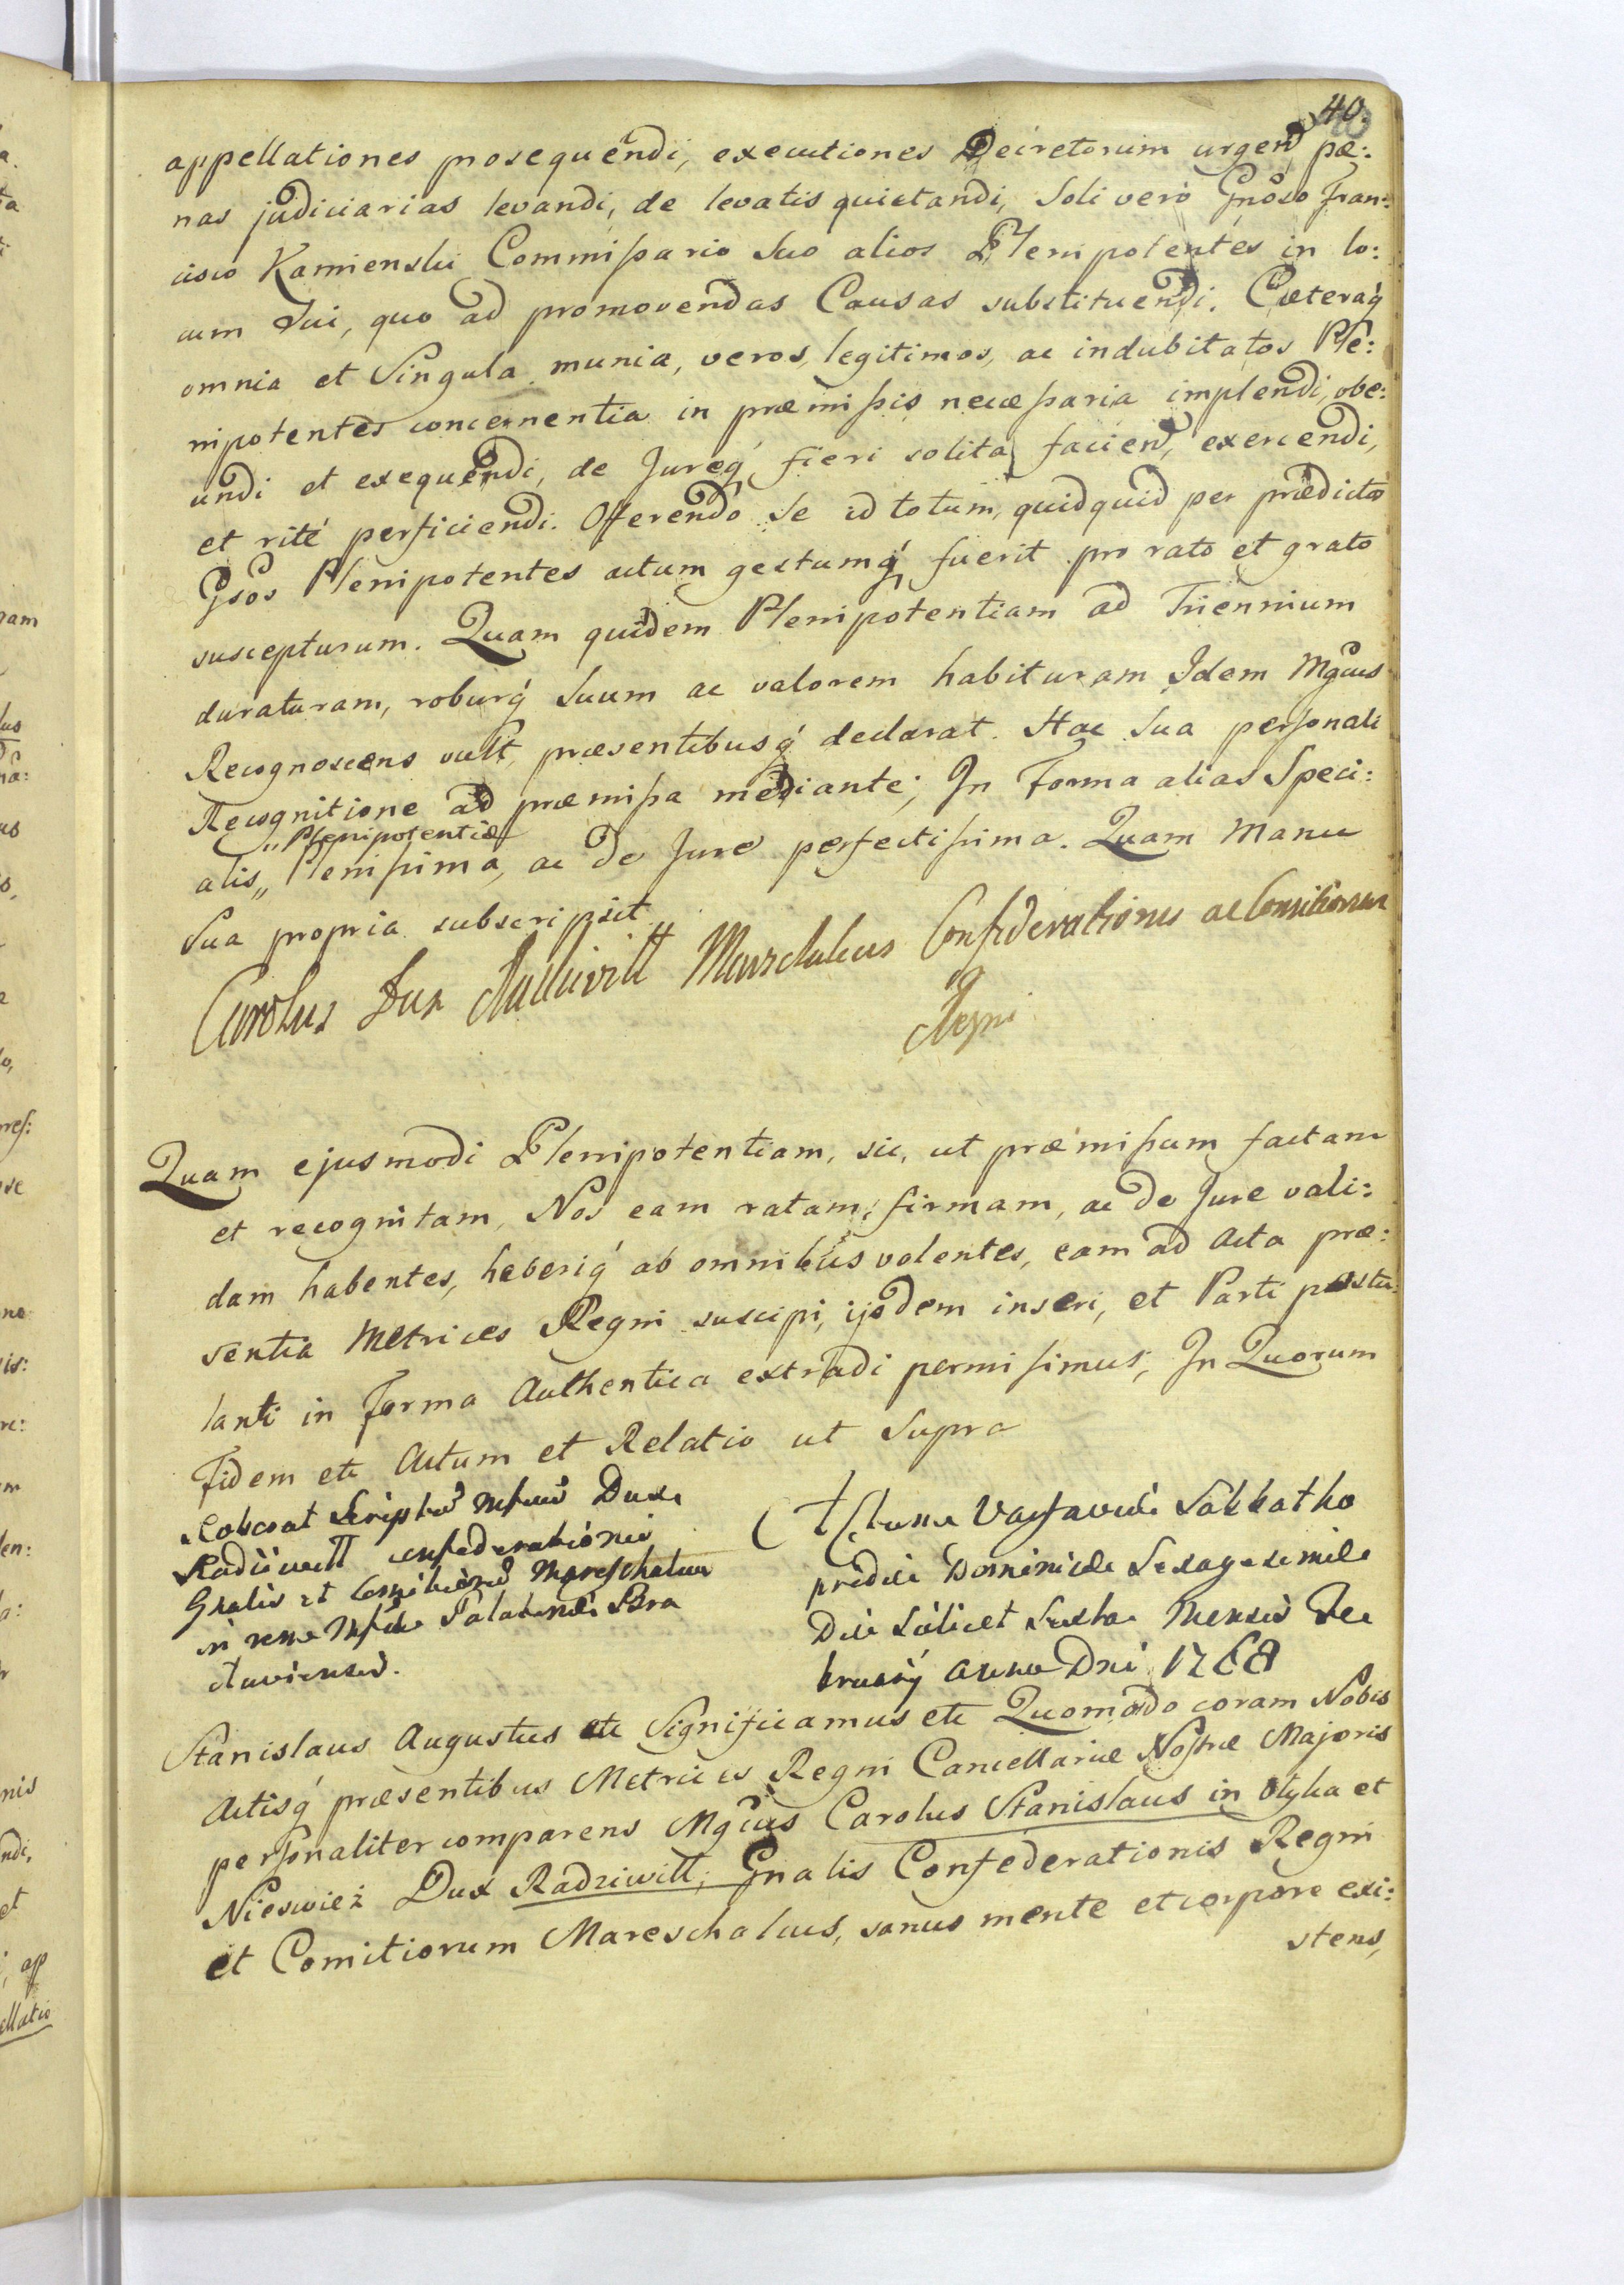 40.
appellationes prosequendi, executiones Decretorum urgend, pæ:
nas judiciarias levandi, de levatis quietandi, Soli vero Gnoso Fran:
cisco Kamienski Commissario Suo alios Plenipotentes in lo:
cum Sui, quo ad promovendas Causas substituendi. Cæteraq́
omnia et Singula munia, veros, legitimos, ac indubitatos Ple:
nipotentes concernentia in præmissis necæssaria implendi, obe:
undi et exequendi, de Jureq́ fieri solita faciend, exercendi,
et rité perficiendi. Offerendo Se id totum, quidquid per prædictos
Gsos Plenipotentes actum gestumq́ fuerit pro rato et grato
suscepturum. Quam quidem Plenipotentiam ad Triennium
duraturam, roburq́ Suum ac valorem habituram Idem Mgcus
Recognoscens vult, præsentibusq́ declarat. Hac Sua personali
Recognitione ad præmissa mediante; In Forma alias Speci:
„Plenipotentiæ
alis„ Plenissima, ac de Jure perfectissima. Quam Manu
Sua propria subscripsit.
Carolus Dux Radziwill Marschalcus Confederationis ac Comitiorum
Regni
Quam ejusmodi Plenipotentiam, sic, ut præmissum factam
et recognitam, Nos eam ratam, firmam, ac de Jure vali:
dam habentes, heberiq́ ab omnibus volentes, eam ad Acta præ:
sentia Metrices Regni suscipi, ijsdem inseri, et Parti postu:
lanti in Forma Authentica extradi permisimus, In Quorum
Fidem etc Actum et Relatio ut Supra
Roborat Scriptum Dux
Radziwill confederationis
Gnalis et Comitiorum Mareschalcus
in rem Palatini Bra
claviensis.
Actum Varsaviæ Sabbatho
pridie Dominicæ Sexagesimæ
Die Scilicet Sexta Mensis Fe
bruarij Anno Dni 1768
Stanislaus Augustus etc Significamus etc Quomodo coram Nobis
Actisq́ præsentibus Metrices Regni Cancellariæ Nostræ Majoris
personaliter comparens Mgcus Carolus Stanislaus in Olyka et
Nieswież Dux Radziwill, Gnalis Confederationis Regni
et Comitiorum Mareschalcus, sanus mente et corpore exi:
stens,